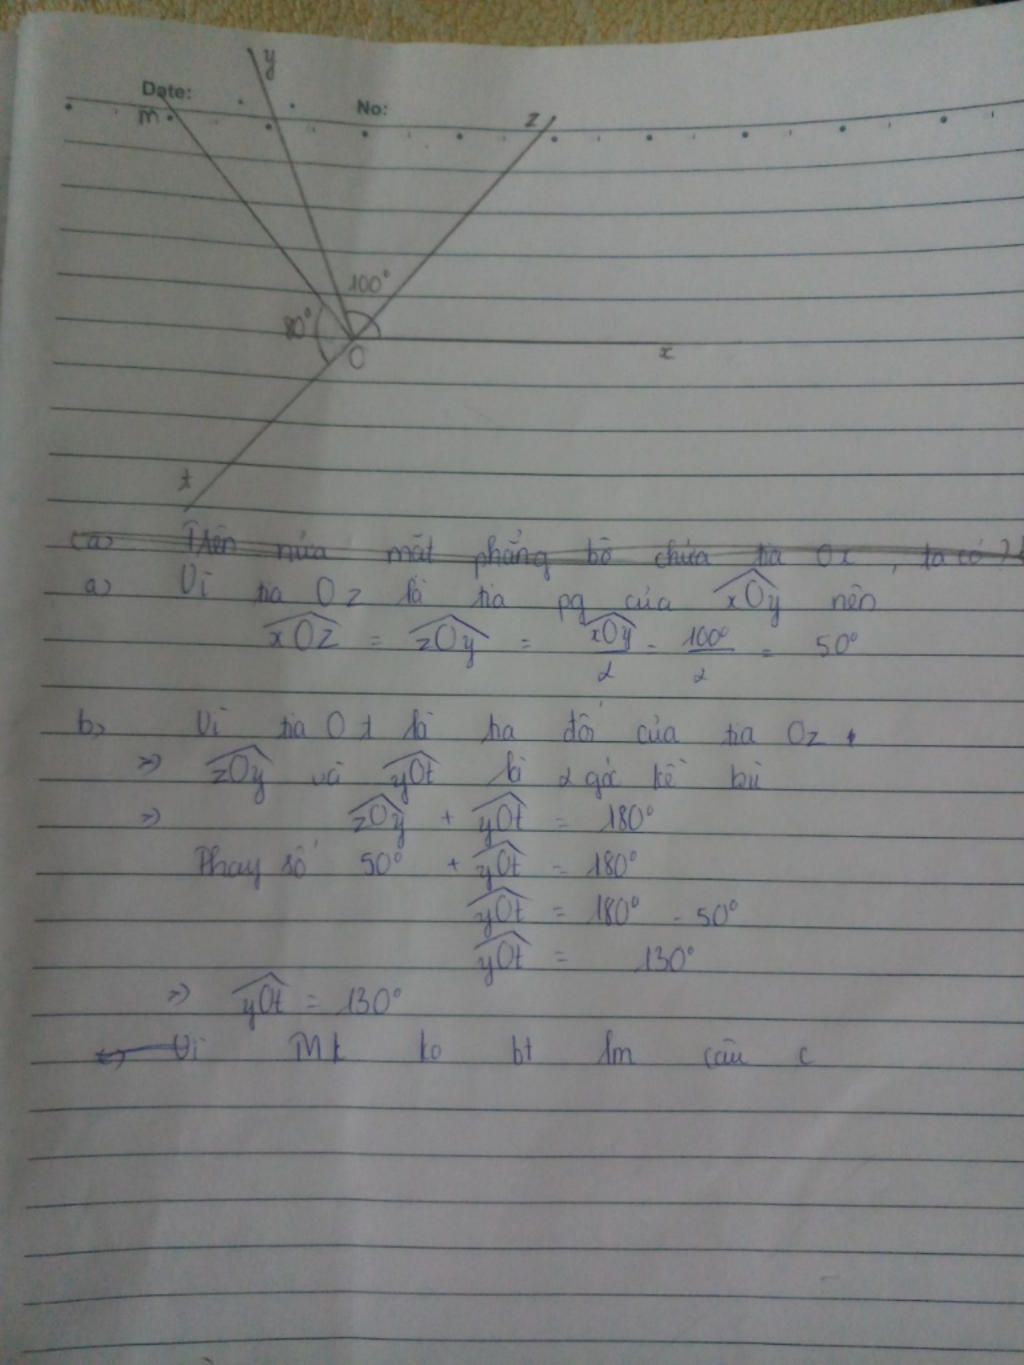 y
Date:
No:
m
z
100°
80°
O
x
t
(a) Trên nửa mặt phẳng bờ chứa tia Ox, ta có
a) Vì tia Oz là tia pg của xOy nên
xOz = zOy = xOy/2 = 100°/2 = 50°
b) Vì tia Ot là tia đối của tia Oz
=> zOy và yOt là 2 góc kề bù
=> zOy + yOt = 180°
Thay số 50° + yOt = 180°
yOt = 180° - 50°
yOt = 130°
=> yOt = 130°
c) Vì Mk ko bt lm câu c